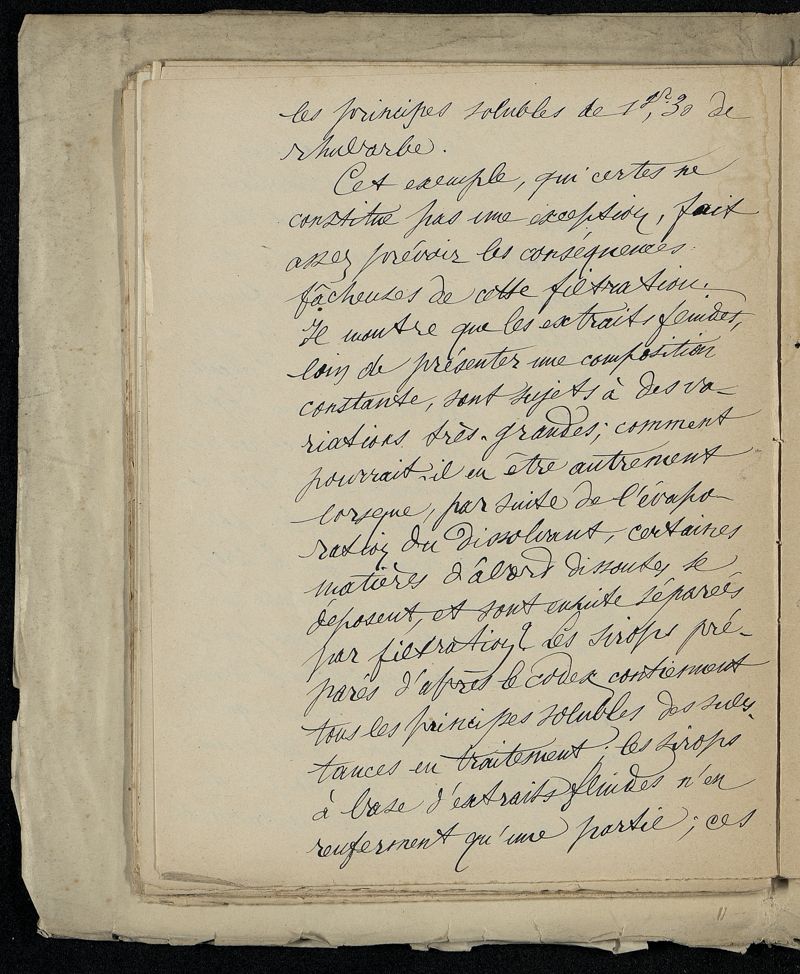 les principes solubles de 1gr,30 de
rhubarbe.
Cet exemple, qui certes ne
constitue pas une exception, fait
assez prévoir les conséquences
fâcheuses de cette filtration.
Il montre que les extraits fluides,
loin de présenter une composition
constante, sont sujets à des va-
riations très-grandes; comment
pourrait-il en être autrement
lorsque, par suite de l'évapo-
ration du dissolvant, certaines
matières d'abord dissoutes, se
déposent, et sont ensuite séparées
par filtration? Les sirops pré-
parés d'après le codex contiennent
tous les principes solubles des subs-
tances en traitement; les sirops
à base d'extraits fluides n'en
renferment qu'une partie; ces
11